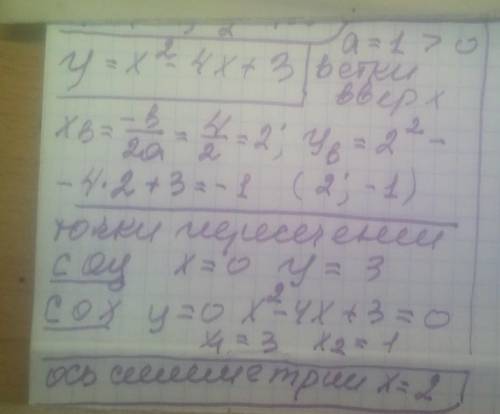 a = 1 > 0
y = x² - 4x + 3 ветки
вверх
xв = -в/2a = 4/2 = 2; yв = 2² -
- 4·2 + 3 = -1 (2; -1)
точки пересечении
с оу x = 0 y = 3
с ох y = 0 x² - 4x + 3 = 0
x₁ = 3 x₂ = 1
ось симметрии x = 2